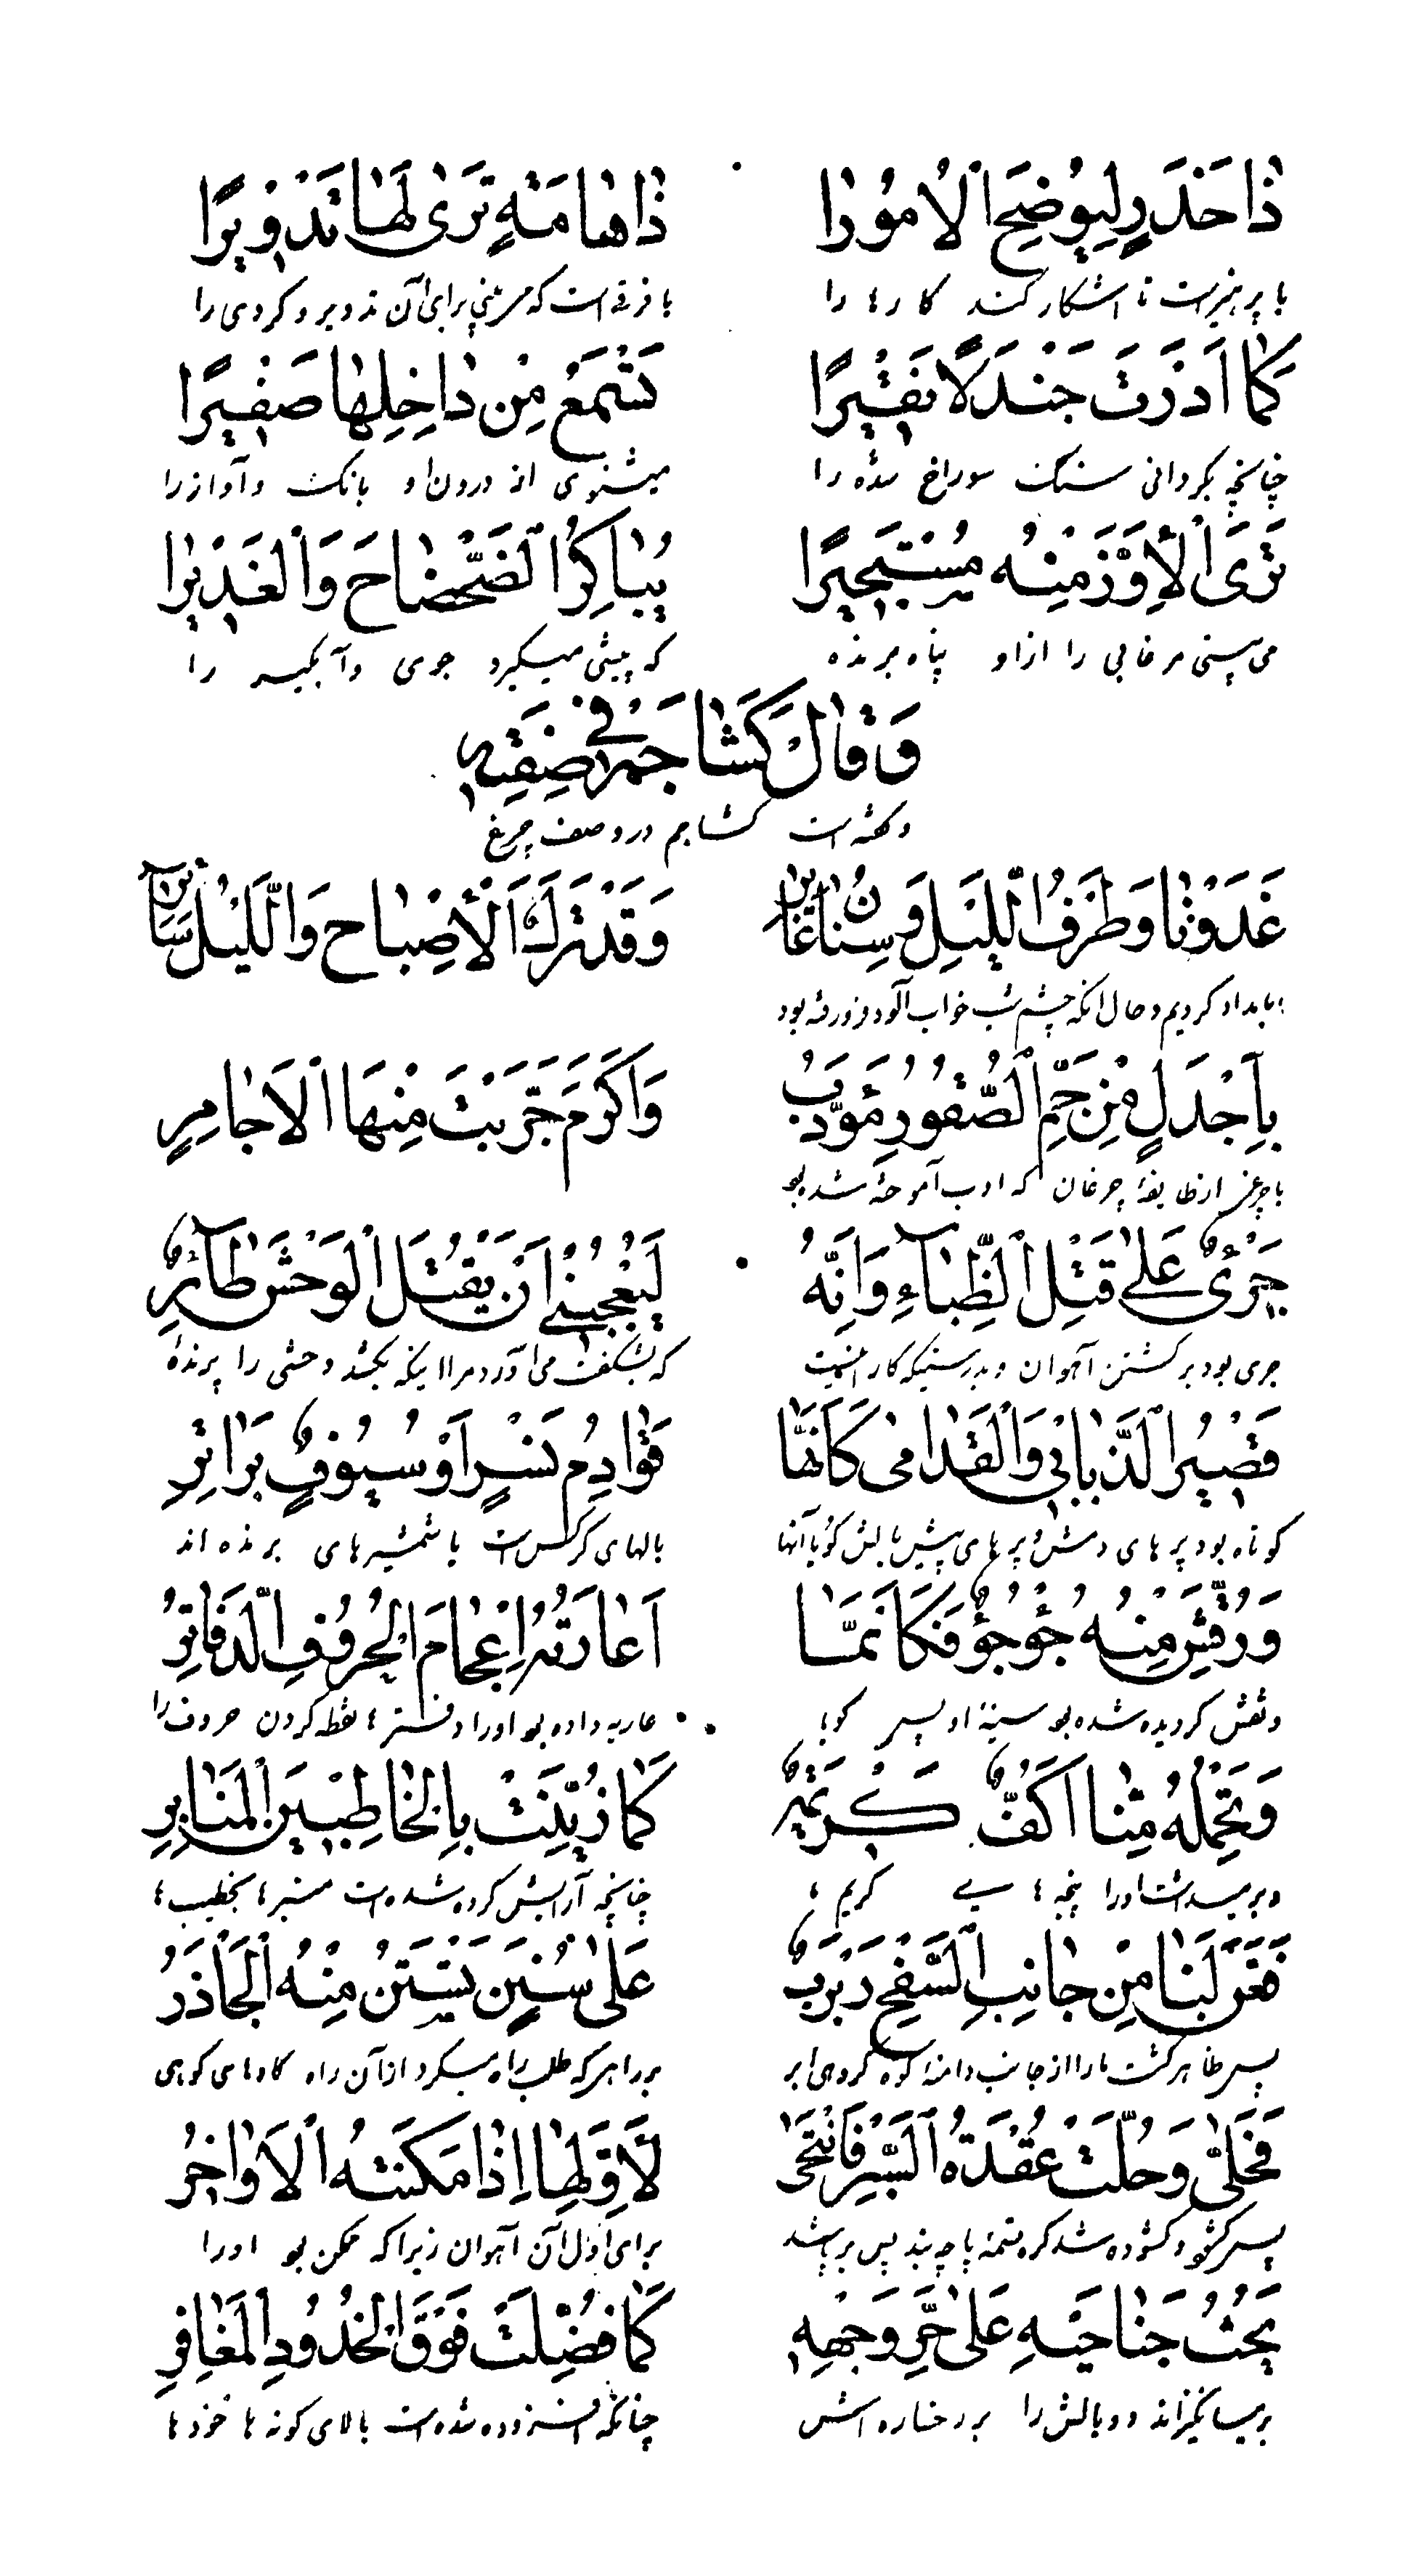 ذَا حَذَرٍ لِيُوضِحَ الْأُمُورَا ذَا هَامَةٍ تَرَى لَهَا تَدْوِيرًا
با پرهیزست تا اشکار کند کارها را با فرقی است که مر بینی برای آن تدویر و کردی را
كَمَا أَدَرْتَ جَنْدَلًا نَقِيرًا تَسْمَعُ مِنْ دَاخِلِهَا صَفِيرًا
چنانچه بگردانی سنگ سوراخ شده را میشنوی از درون او بانک و آواز را
تَرَى الْإِوَزَّ مِنْهُ مُسْتَجِيرًا يُبَاكِرُ الضَّحْضَاحَ وَالْغَدِيرَا
می بینی مرغابی را از او پناه برنده که پیشی میگیرد جوی و آبگیر را
وَقَالَ كَشَاجَمُ فِي صِفَتِهِ
و گفته است کشاجم در وصف چرغ
غَدَوْنَا وَطَرْفُ اللَّيْلِ وَسْنَانُ غَابِرُ وَقَدْ نَزَلَ الْإِصْبَاحُ وَاللَّيْلُ سَائِرُ
بامداد کردیم و حال انکه چشم شب خواب آلود فرو رفته بود
بِأَجْدَلٍ مِنْ حُمْرِ الصُّقُورِ مُؤَدَّبٍ وَأَكْرَمُ جَرَّبْتَ مِنْهَا الْأَحَامِرُ
با چرغی از طایفهٔ چرغان که ادب آموخته شده بود
جَرِيءٌ عَلَى قَتْلِ الظِّبَاءِ وَإِنَّهُ لَيُعْجِبُنِي أَنْ يَقْتُلَ الْوَحْشَ طَائِرٌ
جری بود بر کشتن آهوان و بدرستیکه کار که بشگفت می آورد مرا اینکه بکشد وحشی را پرندهٔ
قَصِيرُ الذُّنَابَى وَالْقُدَامَى كَأَنَّهَا قَوَادِمُ نَسْرٍ أَوْ سُيُوفٌ بَوَاتِرُ
کوتاه بود پرهای دمش و پرهای پیشین بالش گویا آنها بالهای کرکس است یا شمشیرهای برنده اند
وَرُقِّشَ مِنْهُ جُؤْجُؤٌ فَكَأَنَّمَا أَعَارَتْهُ إِعْجَامَ الْحُرُوفِ الدَّفَاتِرُ
و نقش کردیده شده بود سینهٔ او پس گویا عاریه داده بود او را دفترها نقطه کردن حروف را
وَتَحْمِلُهُ مِنَّا أَكُفٌّ كَرِيمَةٌ كَمَا زُيِّنَتْ بِالْخَاطِبِينَ الْمَنَابِرُ
و بر میداشت او را پنجه های کریم ما چنانچه آرایش کرده شده است منبرها بخطیب ها
فَعَنَّ لَنَا مِنْ جَانِبِ السَّفْحِ رَبْرَبٌ عَلَى سُنَنٍ يَسْتَنُّ مِنْهُ الْجَآذِرُ
پس ظاهر گشت ما را از جانب دامنهٔ کوه گروهی بر راهی که طلب راه میکرد از آن راه گاوهای کوهی
فَجَلَّى وَحُلَّتْ عُقْدَةُ السَّيْرِ فَانْتَحَى لِأَوَّلِهَا إِذْ أَمْكَنَتْهُ الْأَوَاخِرُ
و گشوده شد گره تسمهٔ پاچه بند پس برای اول آن آهوان زیرا که ممکن بود او را
يَحُثُّ جَنَاحَيْهِ عَلَى حُرِّ وَجْهِهِ كَمَا فُضِّلَتْ فَوْقَ الْخُدُودِ الْمَغَافِرُ
بر میانگیزاند دو بالش را بر رخساره اش چنانکه افزوده شده است بالای گونه ها خودها